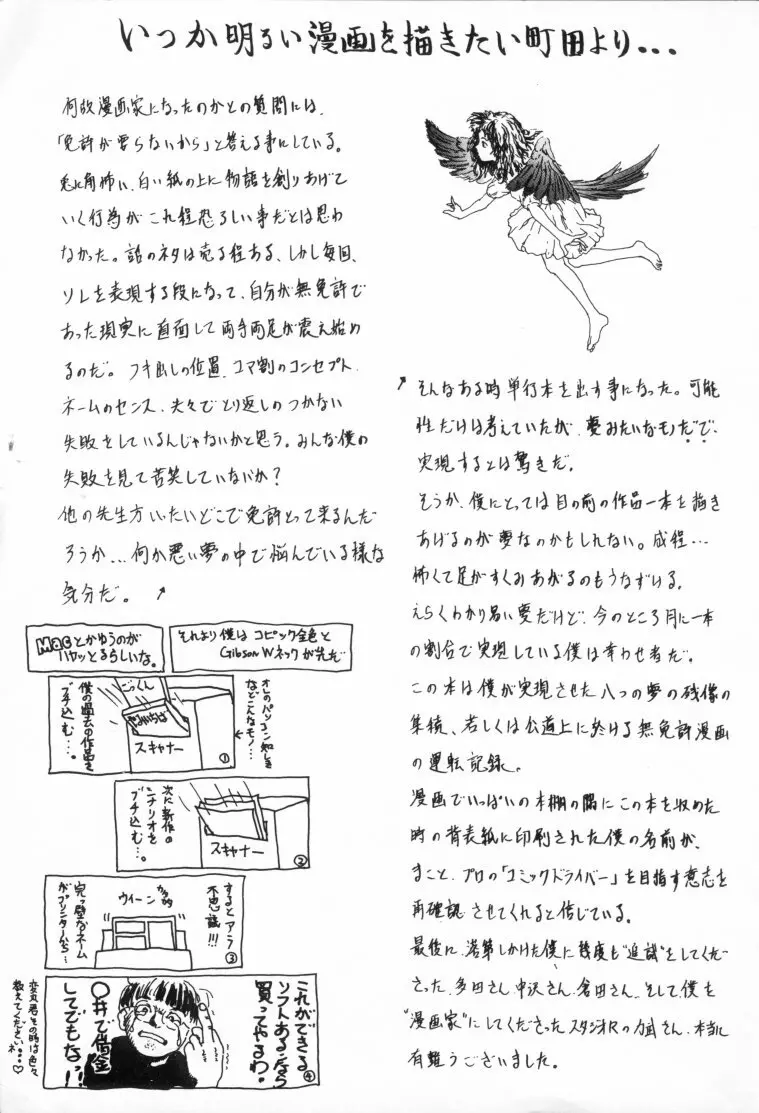 いつか明るい漫画を描きたい町田より...
何故漫画家になったのかとの質問には、
「免許が要らないから」と答える事にしている。
兎に角怖い、白い紙の上に物語を創りあげて
いく行為がこれ程恐ろしい事だとは思わ
なかった。話のネタは売る程ある、しかし毎回、
ソレを表現する段になって、自分が無免許で
あった現実に直面して両手両足が震え始め
るのだ。フキ出しの位置、コマ割のコンセプト、
ネームのセンス、夫々でとり返しのつかない
失敗をしているんじゃないかと思う。みんな僕の
失敗を見て苦笑していないか?
他の先生方いったいどこで免許とって来るんだ
ろうか...何か悪い夢の中で悩んでいる様な
気分だ。
そんなある時単行本を出す事になった。可能
性だけは考えていたが、夢みたいなモノだで、
実現するとは驚きだ。
そうか、僕にとっては目の前の作品一本を描き
あげるのが夢なのかもしれない。成程...
怖くて足がすくみあがるのもうなずける。
えらくわかり易い夢だけど、今のところ月に一本
の割合で実現している僕は幸わせ者だ。
この本は僕が実現させた八つの夢の残像の
集積、若しくは公道上に於ける無免許漫画
の運転記録。
漫画でいっぱいの本棚の隅にこの本を収めた
時の背表紙に印刷された僕の名前が、
まこと、プロの「コミックドライバー」を目指す意志を
再確認させてくれると信じている。
最後に、落第しかけた僕に幾度も"追試"をしてくだ
さった、多田さん、中沢さん、倉田さん、そして僕を
"漫画家"にしてくださったスタジオRの力武さん、本当に
有難うございました。
Macとかゆうのが
ハヤッとるらしいな。
それより僕はコピック金色と
Gibson Wネックが先だ
オレのパソコン知しき
などこんなモノ...
僕の過去の作品を
ブチ込む...。
ごっくん
スキャナー
①
次に新作の
シナリオを
ブチ込む...。
スキャナー
②
するとアラ
不思議!!!
ウイーン
完っ璧なネーム
がプリンターから...
③
これができる
ソフトあるなら
買ってやるわ。
〇井で借金
してでもなっ!!
④
その時は色々
教えてくださいネ...♡